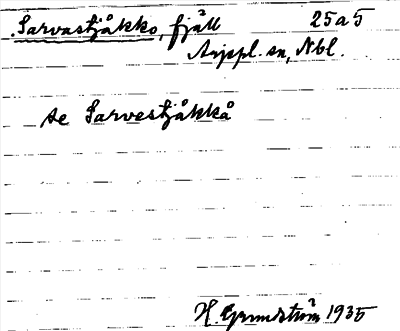 Sarvastjåkko, fjäll 25a5
Arjpl. sn, Nbl.
se Sarvestjåkkå
H. Grundström 1935